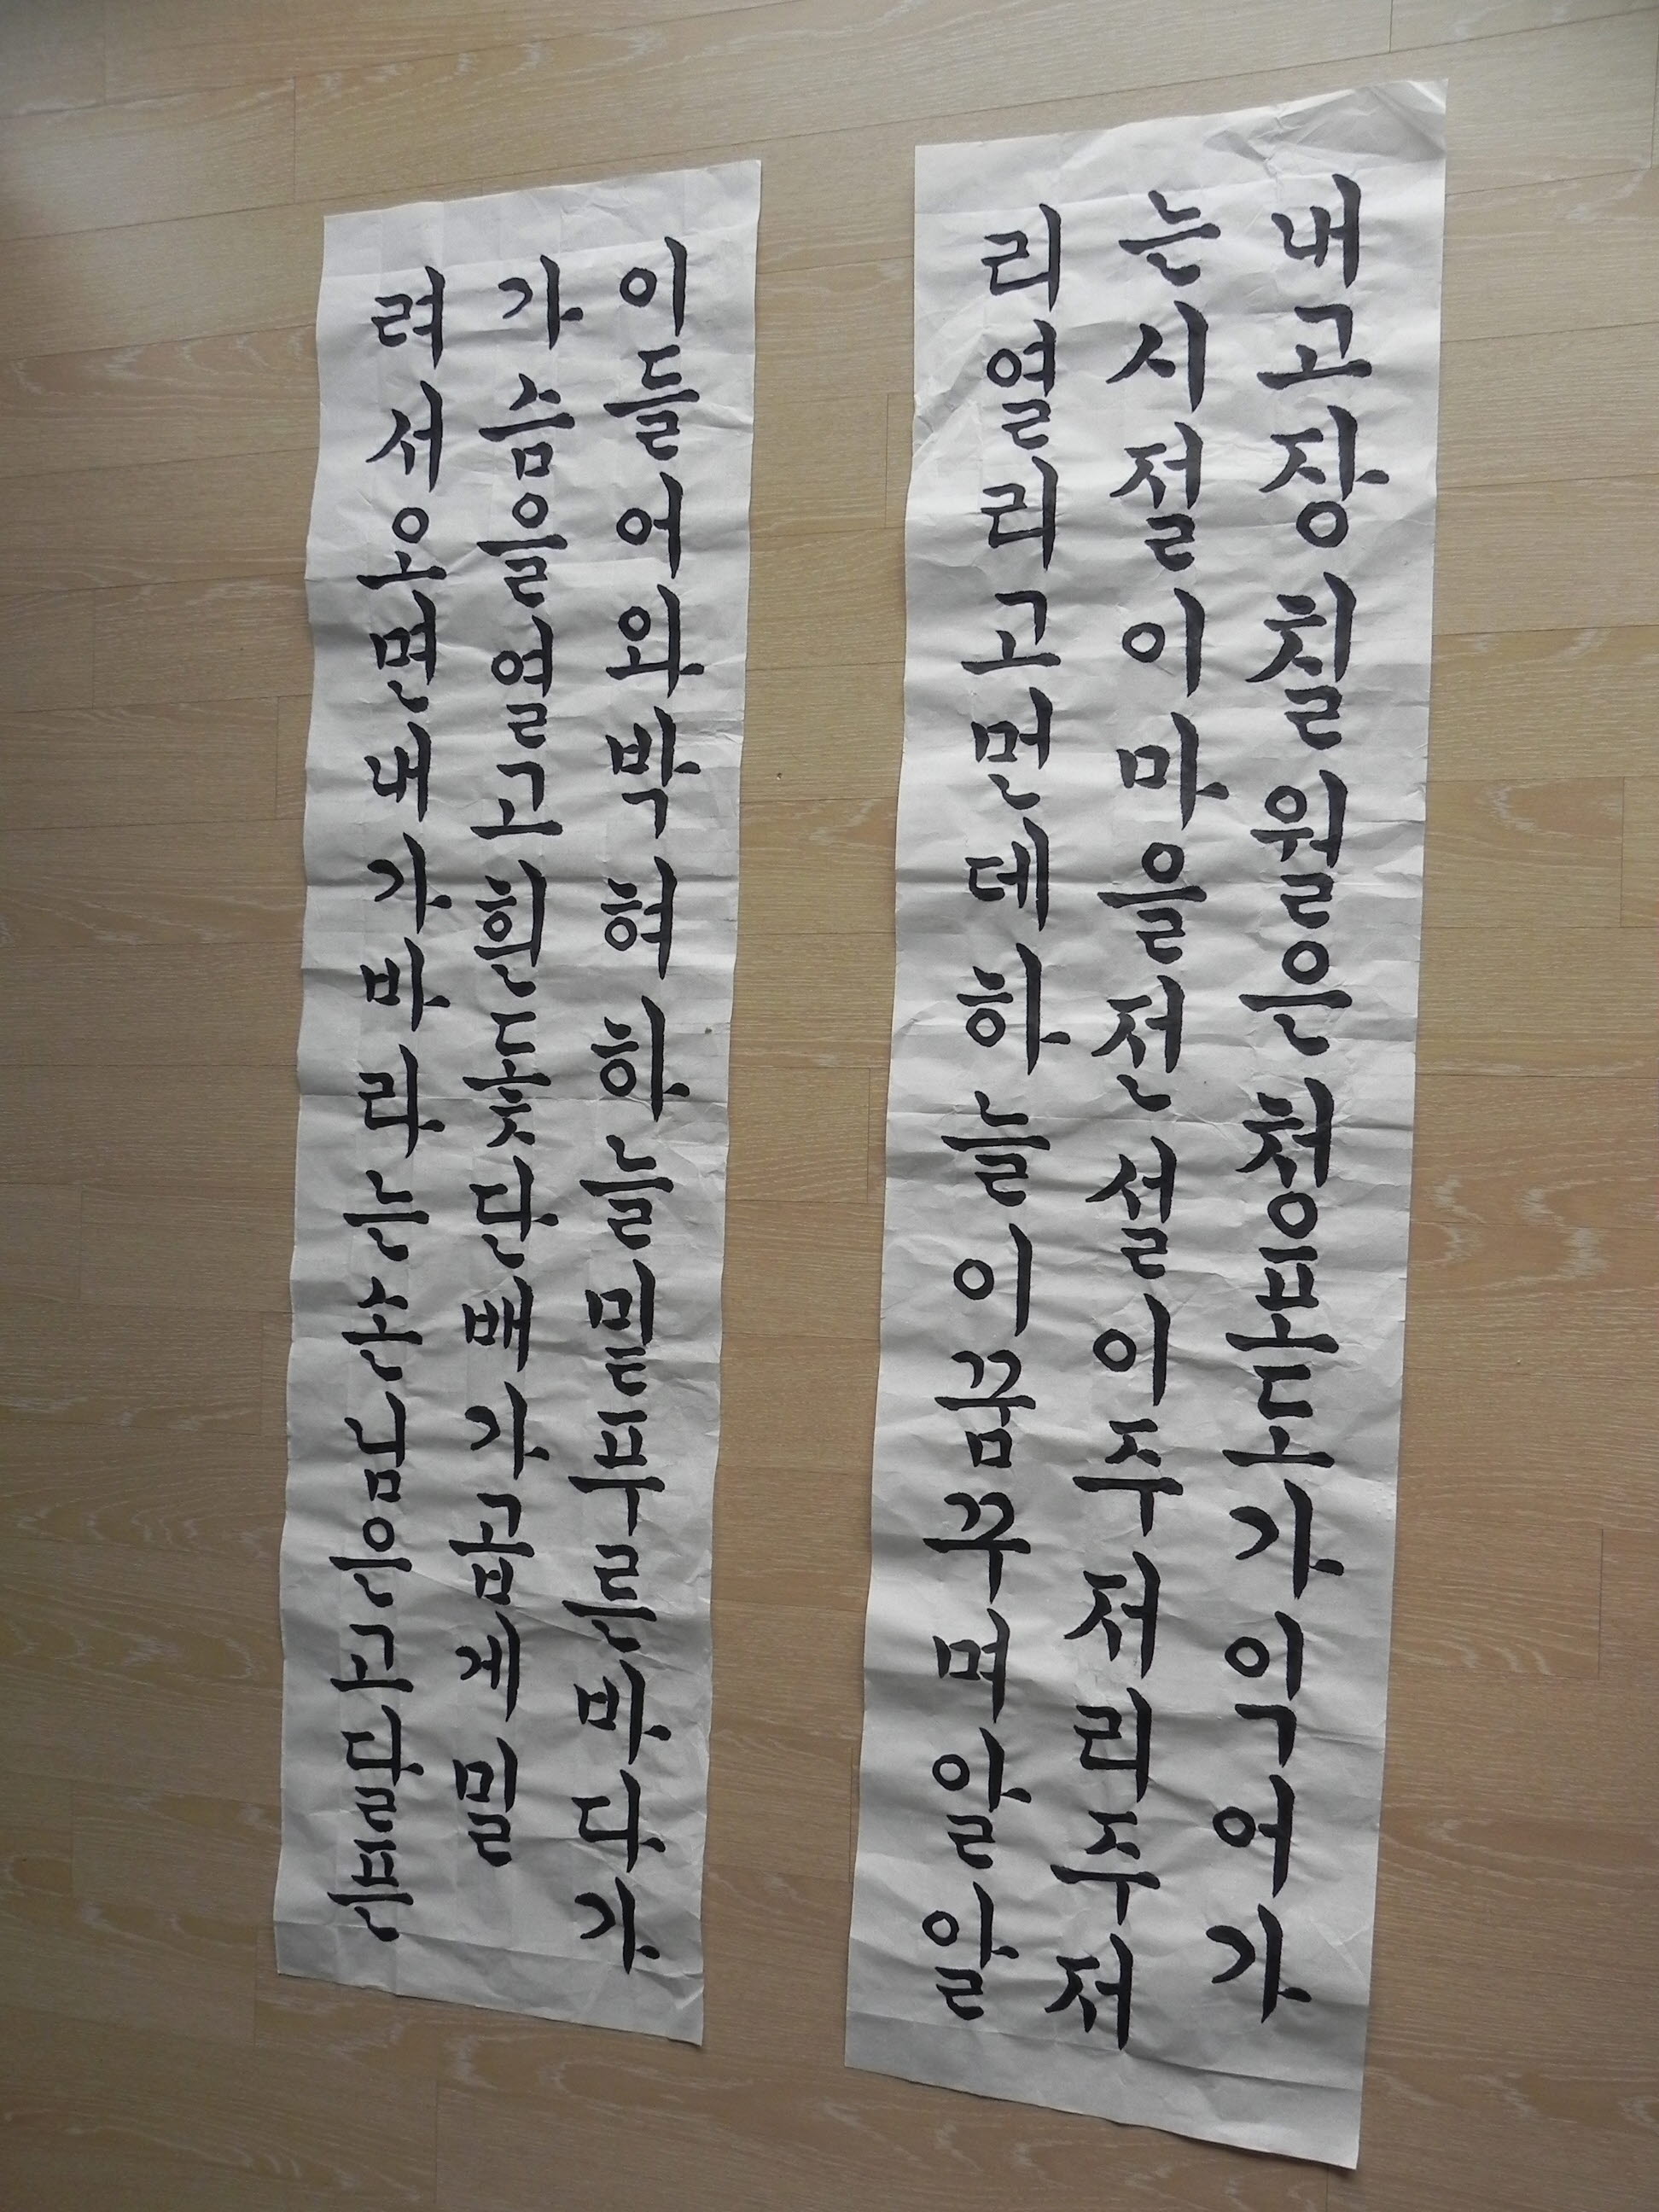 내고장칠월은청포도가익어가
는시절이마을전설이주저리주저
리열리고먼데하늘이꿈꾸며알알
이들어와박혀하늘밑푸른바다가
가슴을열고흰돛단배가곱게밀
려서오면내가바라는손님은고달픈